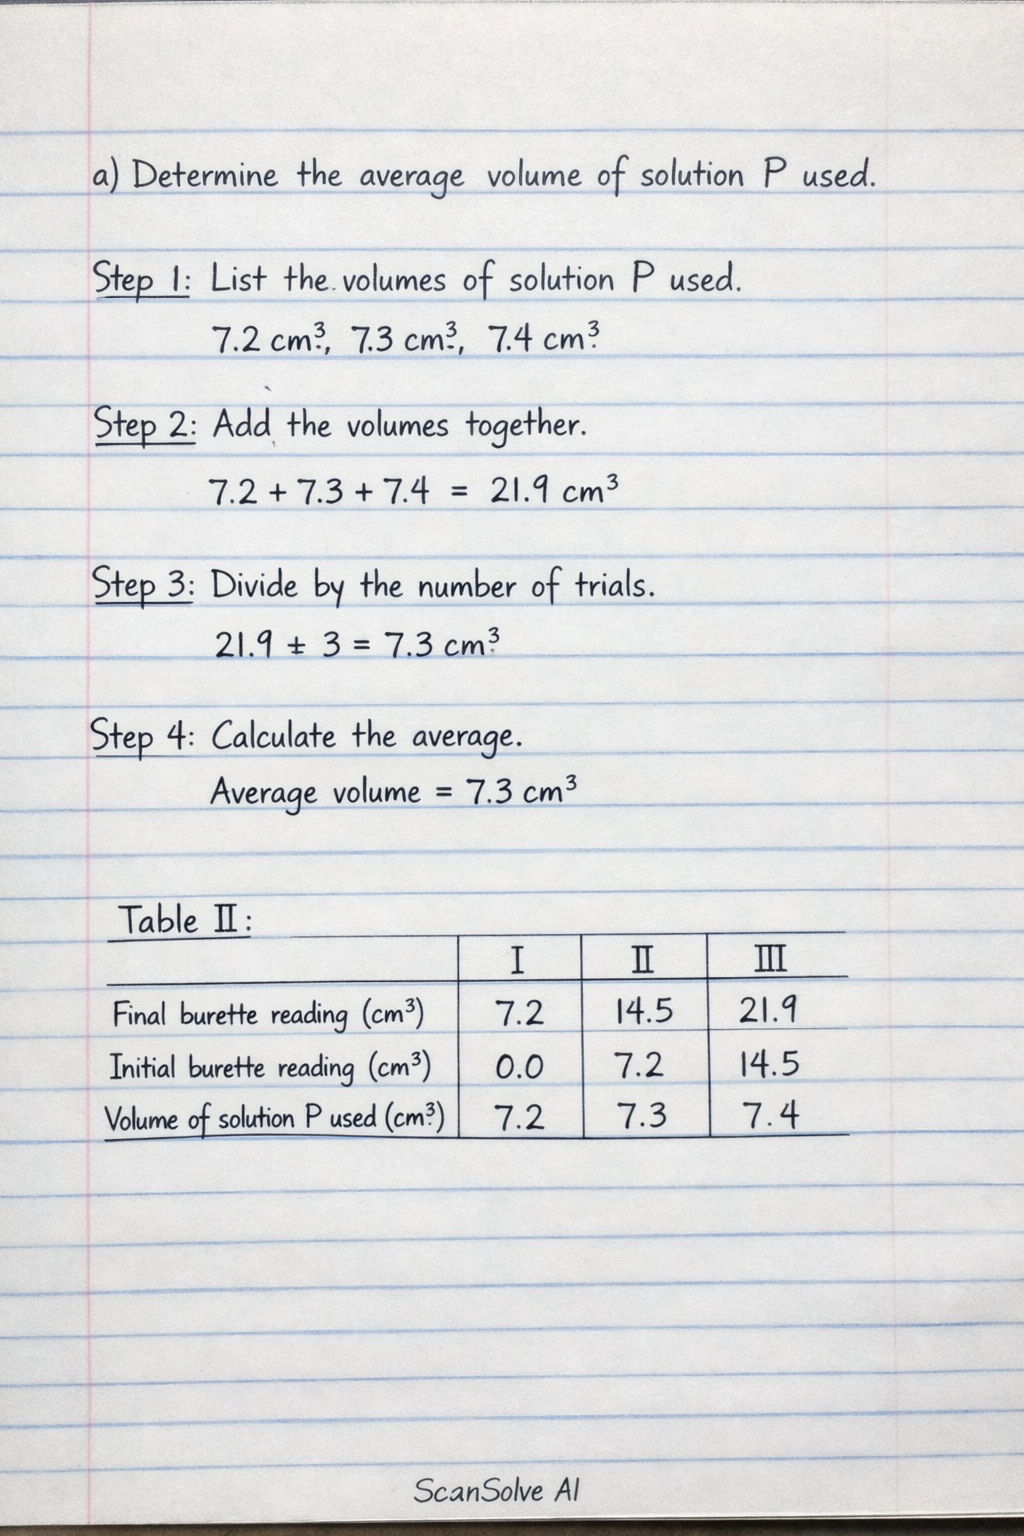 a) Determine the average volume of solution P used.
Step 1: List the volumes of solution P used.
7.2 cm³, 7.3 cm³, 7.4 cm³
Step 2: Add the volumes together.
7.2 + 7.3 + 7.4 = 21.9 cm³
Step 3: Divide by the number of trials.
21.9 ± 3 = 7.3 cm³
Step 4: Calculate the average.
Average volume = 7.3 cm³
Table II:
I II III
Final burette reading (cm³) 7.2 14.5 21.9
Initial burette reading (cm³) 0.0 7.2 14.5
Volume of solution P used (cm³) 7.2 7.3 7.4
ScanSolve AI